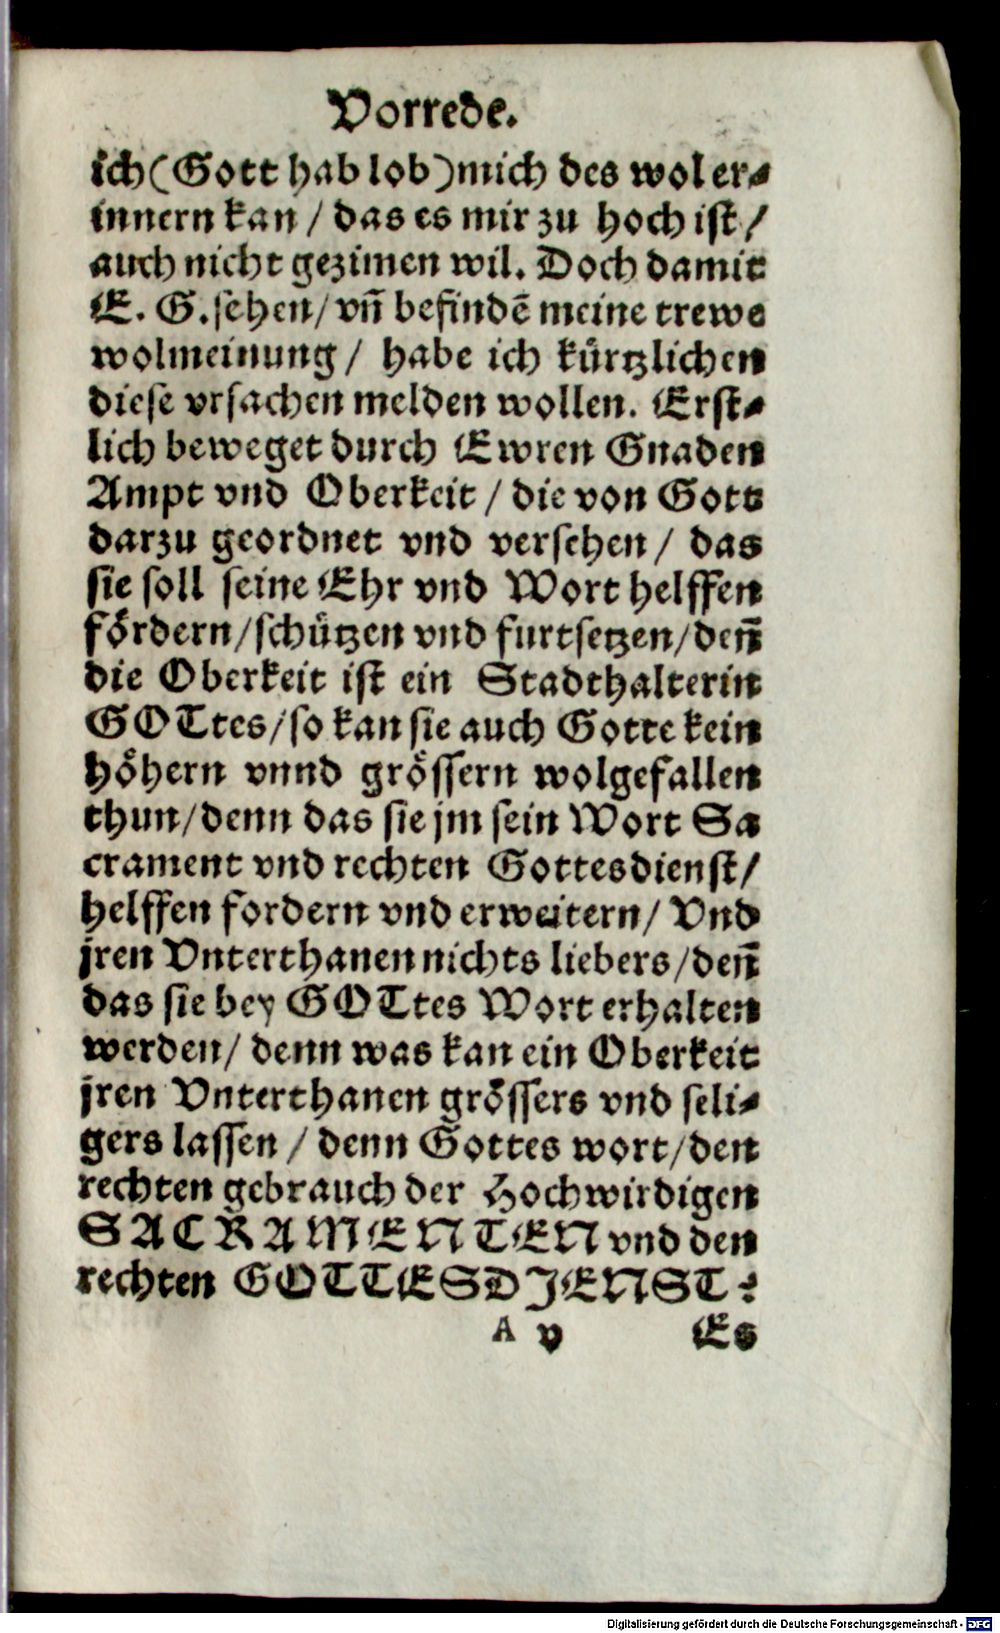 Vorrede.
ich (Gott hab lob) mich des wol er⸗
innern kan / das es mir zu hoch ist /
auch nicht gezimen wil. Doch damit
E. G. sehen / vñ befindē meine trewe
wolmeinung / habe ich kürtzlichen
diese vrsachen melden wollen. Erst⸗
lich beweget durch Ewren Gnaden
Ampt vnd Oberkeit / die von Gott
darzu geordnet vnd versehen / das
sie soll seine Ehr vnd Wort helffen
fördern / schützen vnd furtsetzen / deñ
die Oberkeit ist ein Stadthalterin
GOTtes / so kan sie auch Gotte kein
höhern vnnd grössern wolgefallen
thun / denn das sie jm sein Wort Sa
crament vnd rechten Gottesdienst /
helffen fordern vnd erweitern / Vnd
jren Vnterthanen nichts liebers / deñ
das sie bey GOTtes Wort erhalten
werden / denn was kan ein Oberkeit
jren Vnterthanen grössers vnd seli⸗
gers lassen / denn Gottes wort / den
rechten gebrauch der Hochwirdigen
SACRAMENTEN vnd den
rechten GOTTESDJENST?
A v Es
Digitalisierung gefördert durch die Deutsche Forschungsgemeinschaft - DFG